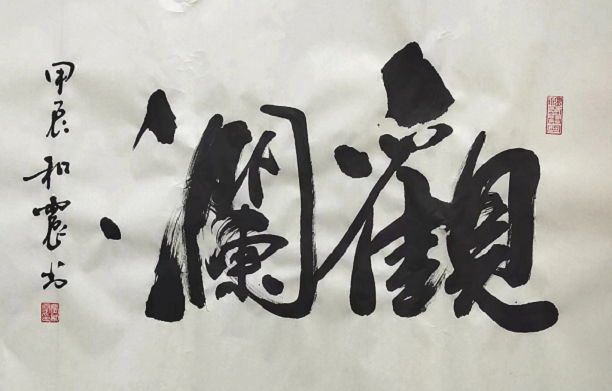 觀瀾
甲辰 和震书